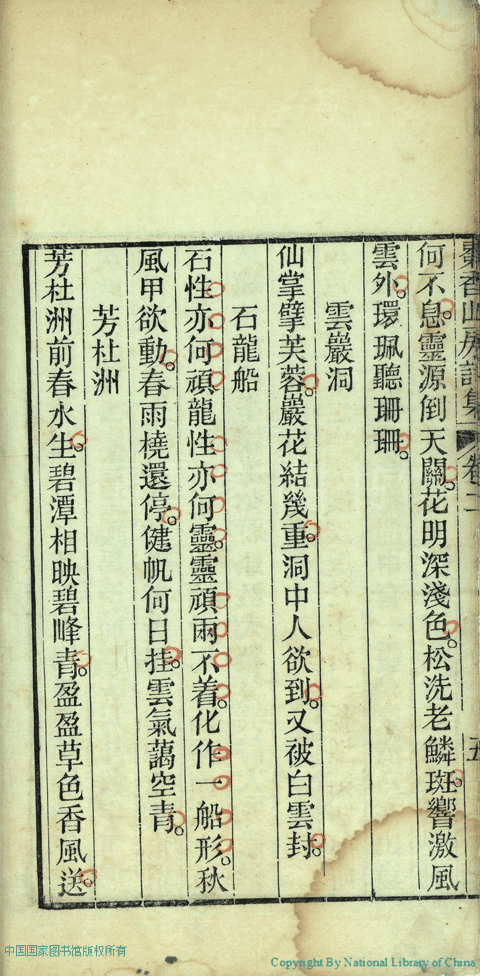 香山房詩集 卷二 五
何不息。靈源倒天關。花明深淺色。松洗老鱗斑。響激風
雲外。環珮聽珊珊。
雲巖洞
仙掌擘芙蓉。巖花結幾重。洞中人欲到。又被白雲封。
石龍船
石性亦何頑龍性亦何靈。靈頑兩不着。化作一船形。秋
風甲欲動。春雨橈還停。健帆何日挂。雲氣藹空青。
芳杜洲
芳杜洲前春水生。碧潭相映碧峰青。盈盈草色香風送。
中国国家图书馆版权所有
Copyright By National Library of China